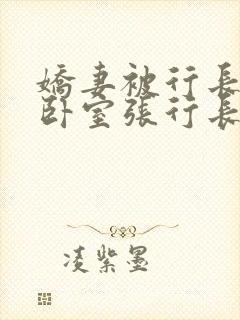 嬌妻被行長
卧室張行長
凌紫墨